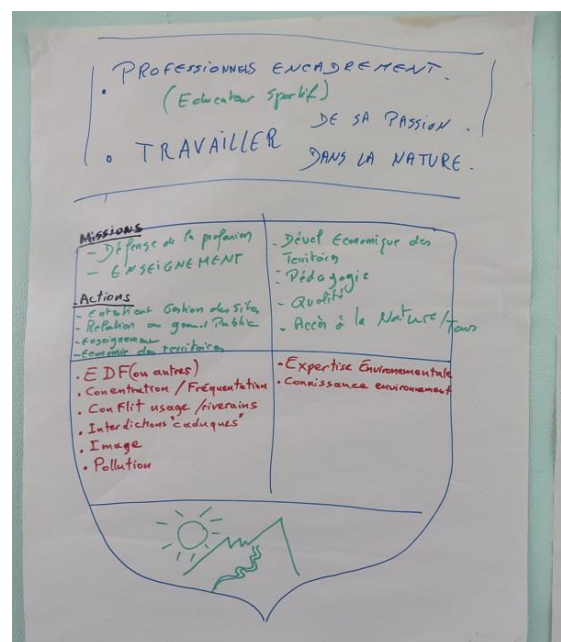 . PROFESSIONNELS ENCADREMENT.
(Educateur Sportif)
. TRAVAILLER
DE SA PASSION.
DANS LA NATURE.
Missions
- Défense de la profession
- ENSEIGNEMENT
. Actions
- Entretient Gestion des Sites
- Relation au grand Public
- Enseignement
- Economie des territoires
- Dével Economique des
Territoires
- Pédagogie
- Qualité
- Accès à la Nature/Tous
. EDF (ou autres)
. Concentration / Fréquentation
. Conflit usage /riverains
. Interdictions "caduques"
. Image
. Pollution
. Expertise Environementale
. Connaissance environnement